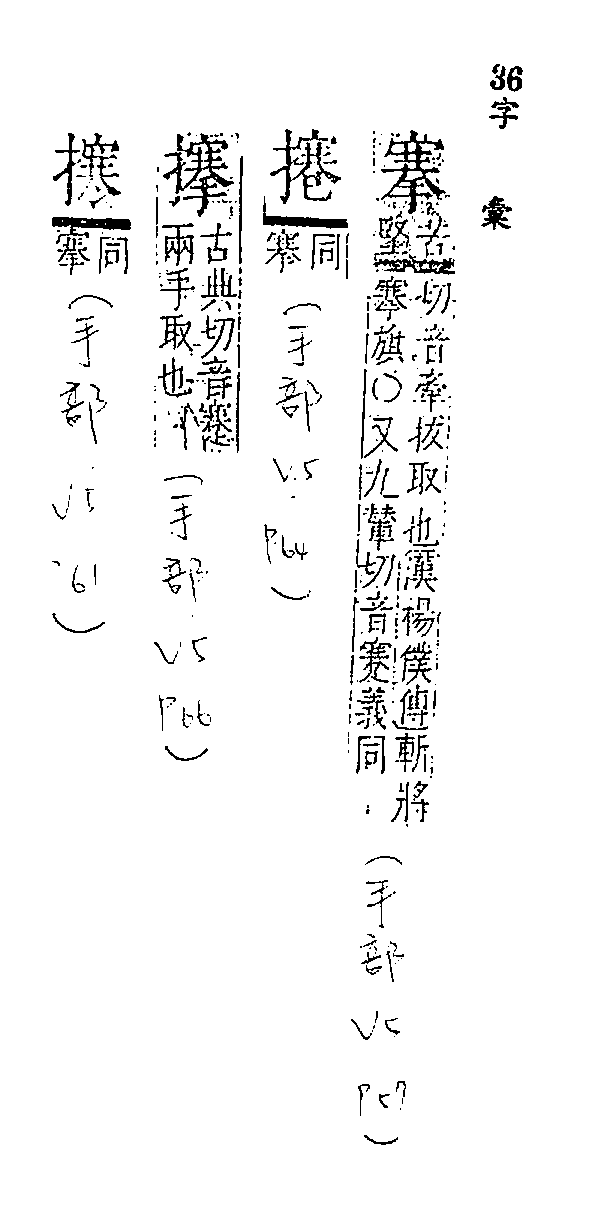 36字彙
搴
苦堅切音牽拔取也漢楊僕傳斬將
搴旗○又九輦切音蹇義同．
(手部 V5 P57)
同搴
(手部 V.5 P64)
古典切音蹇
兩手取也
(手部 V5 P66)
同搴
(手部 V5 '61)